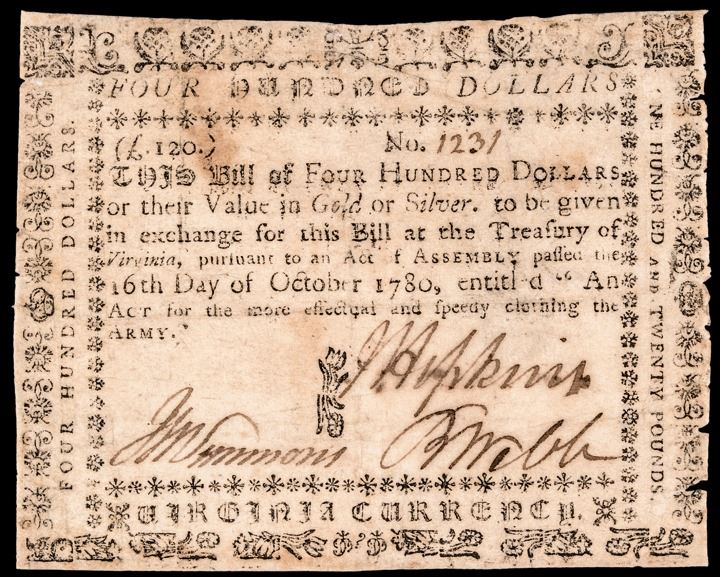 FOUR HUNDNED DOLLARS
(£. 120.) No. 1231
THIS Bill of FOUR HUNDRED DOLLARS
or their Value in Gold or Silver. to be given
in exchange for this Bill at the Treasury of
Virginia, pursuant to an Act of ASSEMBLY passed the
16th Day of October 1780, entitl d “ An
ACT for the more effectual and speedy clothing the
ARMY.”
J Hopkins
B Webb
VIRGINIA CURRENCY.
FOUR HUNDRED DOLLARS.
NE HUNDRED AND TWENTY POUNDS.